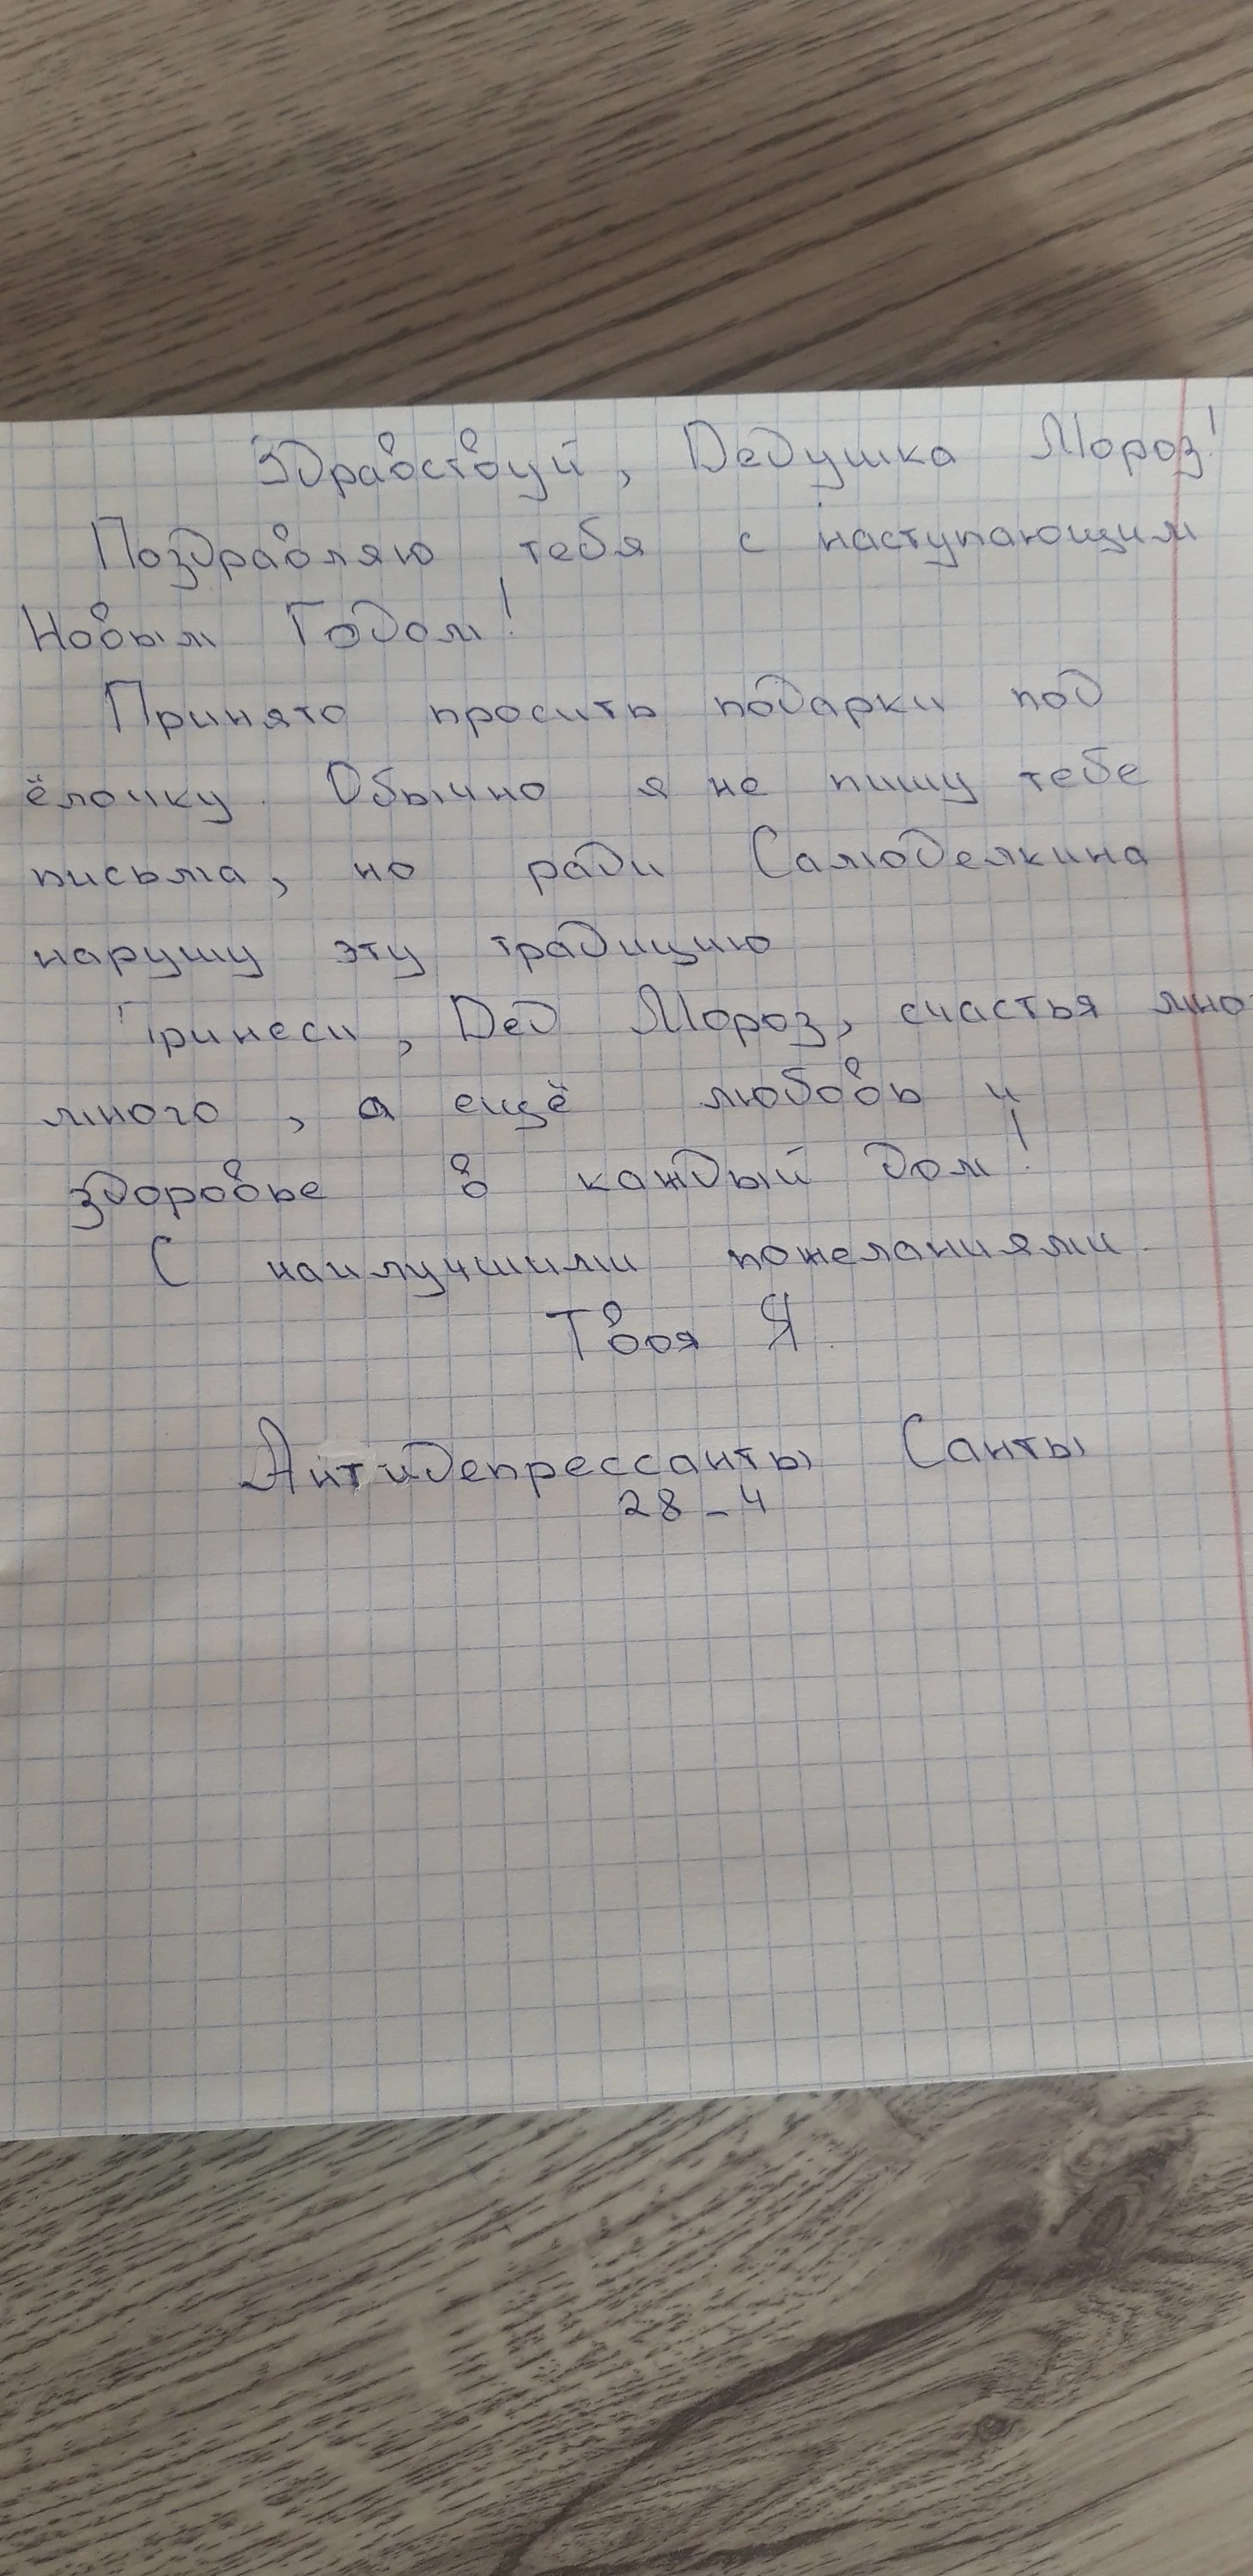 Здравствуй, Дедушка Мороз!
Поздравляю тебя с наступающим
Новым Годом!
Принято просить подарки под
ёлочку. Обычно я не пишу тебе
письма, но ради Самоделкина
нарушу эту традицию
Принеси, Дед Мороз, счастья мно
много, а ещё любовь и
здоровье в каждый дом!
С наилучшими пожеланиями.
Твоя Я.
Антидепрессанты Санты
28-4